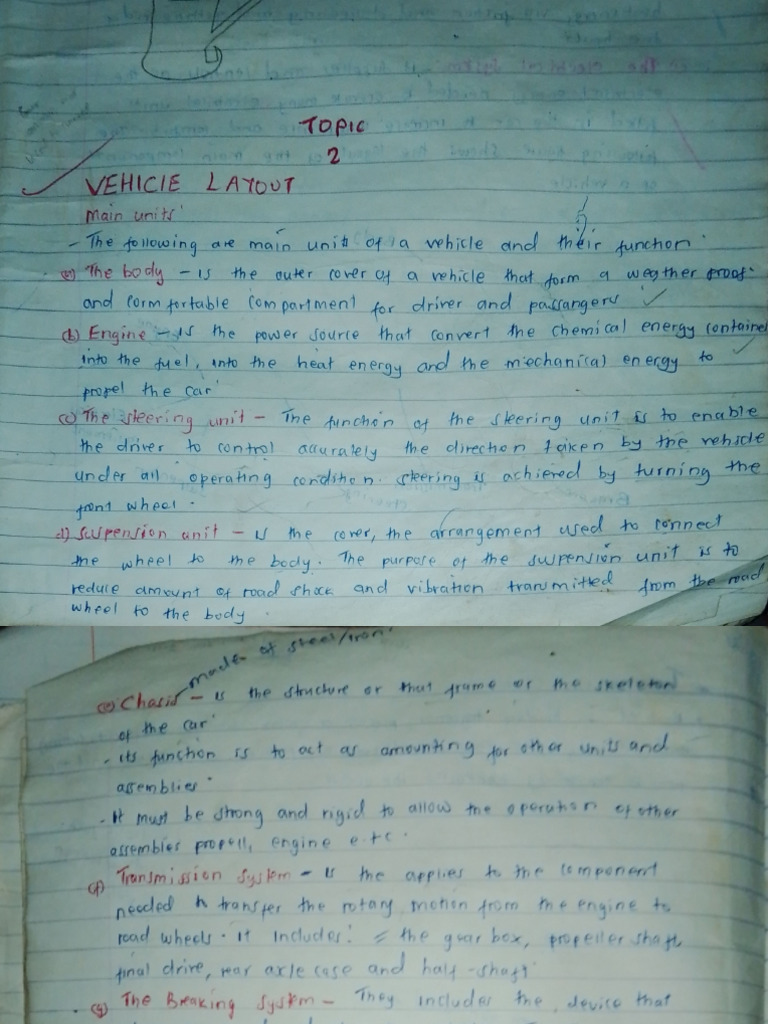 TOPIC
2
VEHICLE LAYOUT
Main units
- The following are main units of a vehicle and their function.
(a) The body - is the outer cover of a vehicle that form a weather proof
and comfortable compartment for driver and passangers
(b) Engine - is the power source that convert the chemical energy contained
into the fuel, into the heat energy and the mechanical energy to
propel the car
(c) The steering unit - The function of the steering unit is to enable
the driver to control accurately the direction taken by the vehicle
under all operating condition. steering is achieved by turning the
front wheel.
d) Suspension unit - is the cover, the arrangement used to connect
the wheel to the body. The purpose of the suspension unit is to
reduce amount of road shock and vibration transmitted from the road
wheel to the body.
made of steel/iron.
(e) Chasis - is the structure or that frame or the skeleton
of the car
- its function is to act as amounting for other units and
assemblies
- It must be strong and rigid to allow the operation of other
assemblies propell, engine e.t.c.
(f) Transmission System - is the applies to the component
needed to transfer the rotary motion from the engine to
road wheels. it includes: = the gear box, propeller shaft,
final drive, rear axle case and half-shaft
(g) The Breaking System - They includes the, device that